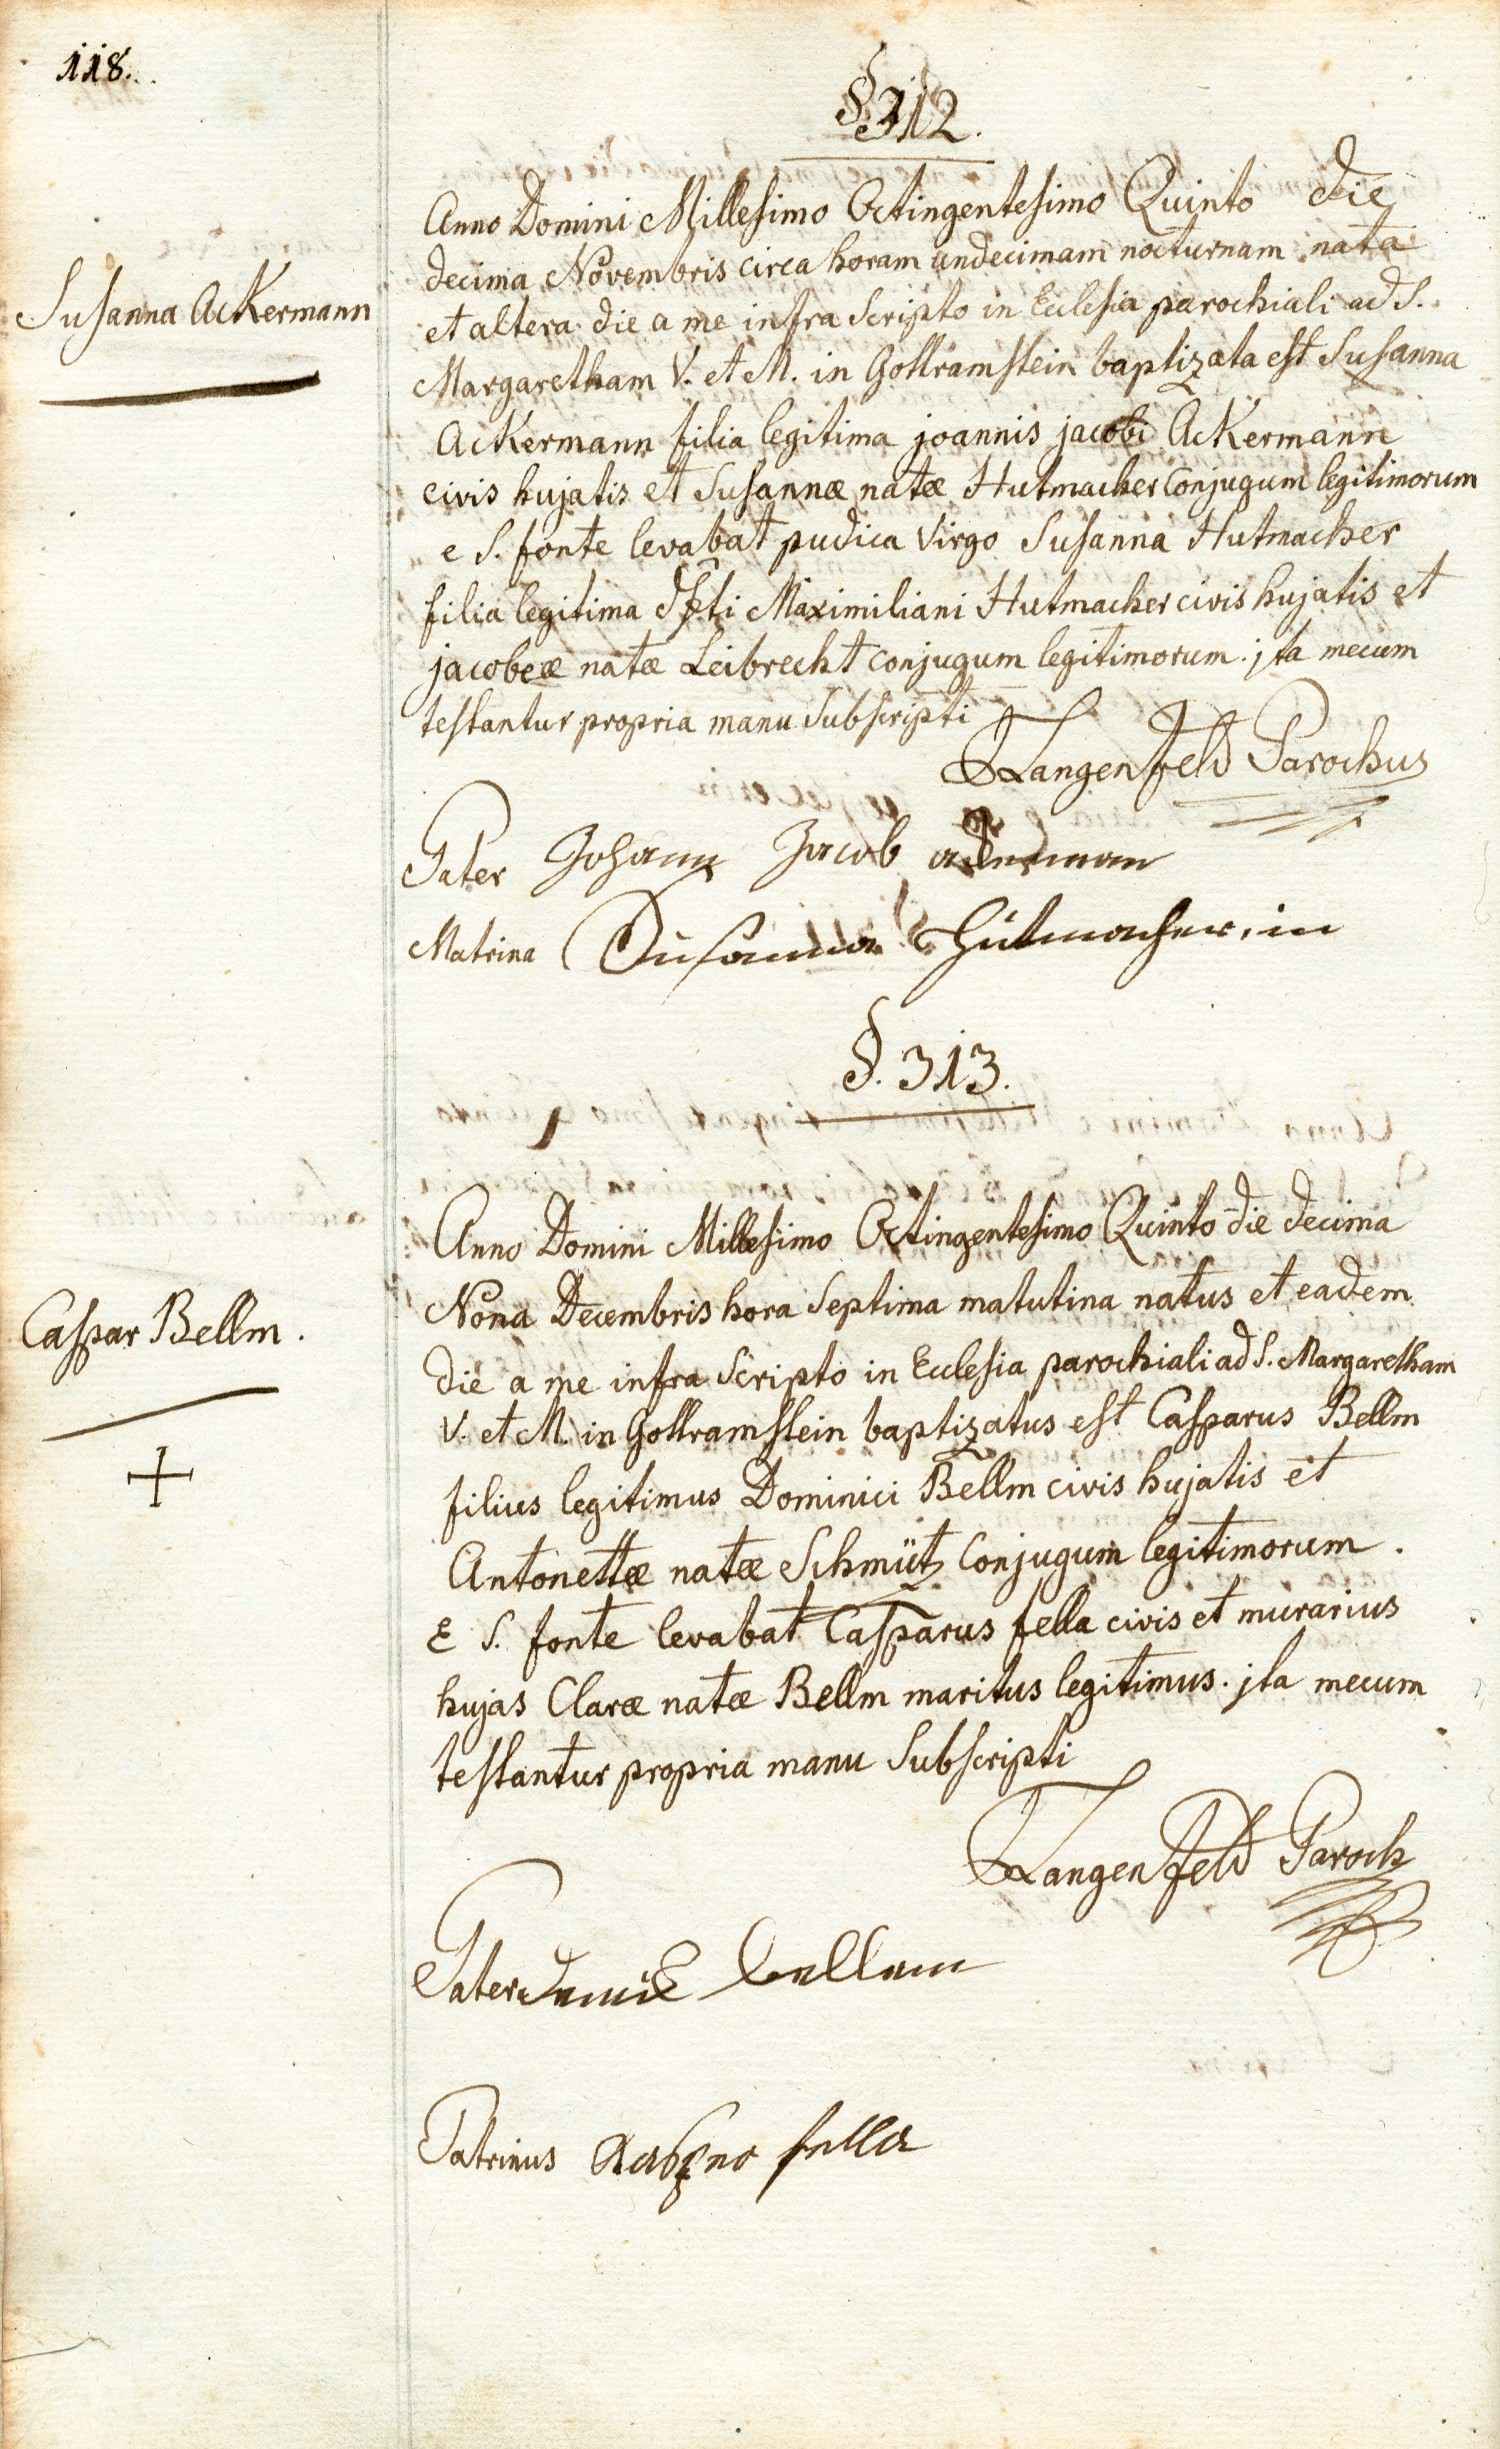 118.
§ 312.
Susanna Ackermann
Anno Domini Millesimo Octingentesimo Quinto die
decima Novembris circa horam undecimam nocturnam nata
et altera die a me infra Scripto in Ecclesia parochiali ad S.
Margaretham V. et M. in Gottramstein baptizata est Susanna
Ackermann filia legitima joannis jacobi Ackermann
civis hujatis et Susannæ natæ Hutmacher Conjugum legitimorum
e S. fonte levabat pudica Virgo Susanna Hutmacher
filia legitima Maximiliani Hutmacher civis hujatis et
jacobeæ natæ Leibrecht conjugum legitimorum. jta mecum
testantur propria manu Subscripti
Langenfeld Parochus
Pater Johann Jacob ackerman
Matrina Susanna Hutmacher.in
§. 313.
Caspar Bellm.
Anno Domini Millesimo Octingentesimo Quinto die decima
Nona Decembris hora Septima matutina natus et eadem
die a me infra Scripto in Ecclesia parochiali ad S. Margaretham
V. et M. in Gottramstein baptizatus est Casparus Bellm
filius legitimus Dominici Bellm civis hujatis et
Antonettæ natæ Schmütz Conjugum legitimorum.
E S. fonte levabat Casparus fella civis et murarius
hujas Claræ natæ Bellm maritus legitimus. jta mecum
testantur propria manu Subscripti
Langenfeld Paroch
Pater bellem
Patrinus fella